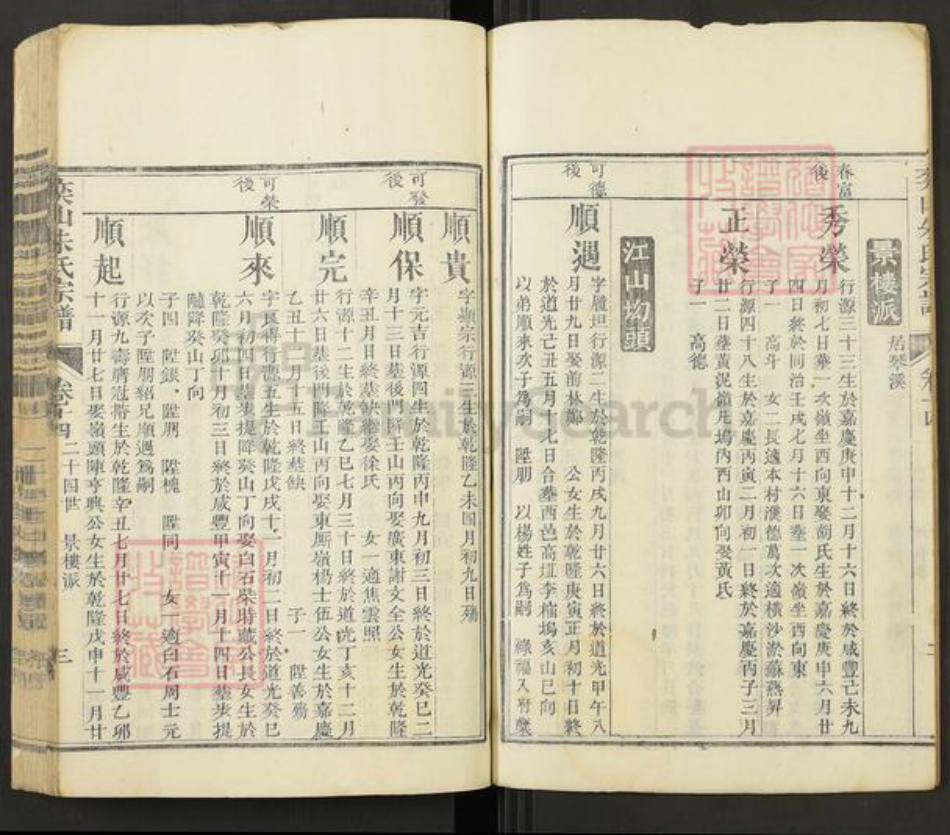 景樓派
居琴溪
春富後
秀榮
行源三十三生於嘉慶庚申十二月十六日終於咸豐己未九
月初七日塟一次嶺坐西向東娶胡氏生於嘉慶庚申六月廿
四日終於同治壬戌七月十六日塟一次嶺坐西向東
子一 高斗 女二長適本村濮德萬次適橫沙淤蘇燕昇
正榮
行源四十八生於嘉慶丙寅二月初一日終於嘉慶丙子三月
廿二日塟黃泥嶺凡塢內西山卯向娶黃氏
子一 高德
江山坳頭
可德後
順遇
字履坦行源二生於乾隆丙戌九月廿六日終於道光甲午八
月廿九日娶前林鄭 公女生於乾隆庚寅正月初十日終
於道光己丑五月十七日合塟西邑高 李楠塢亥山巳向
以弟順來次子為嗣 陞朋 以楊姓子為嗣 祿福又附塟
可發後
順貴
字顯宗行源三生於乾隆乙未 月初九日殤
順保
字元吉行源四生於乾隆丙申九月初三日終於道光癸巳二
月十三日塟後門降壬山丙向娶廣東謝文全公女生於乾隆
辛丑月日終塟缺繼娶徐氏 女一適焦雲照
順完
行源十二生於乾隆乙巳七月三十日終於道光丁亥十二月
廿六日塟後門降壬山丙向娶東厮嶺楊士伍公女生於嘉慶
乙丑十月十五日終塟缺 子一 陞善殤
可榮後
順來
字長傳行源五生於乾隆戊戌十一月初二日終於道光癸巳
六月初四日塟步提降癸山丁向娶白石柴時聽公長女生於
乾隆癸卯十月初三日終於咸豐甲寅十一月十四日塟步提
隨降癸山丁向
子四 陞銀 陞朋 陞槐 陞同 女一適白石周士元
以次子陞朋紹兄順遇為嗣
順起
行源九壽膺冠帶生於乾隆辛丑七月廿七日終於咸豐乙卯
十一月廿七日娶嶺頭陳亨興公女生於乾隆戊申十一月廿
山朱氏宗譜 卷十四 二十四世 景樓派 三